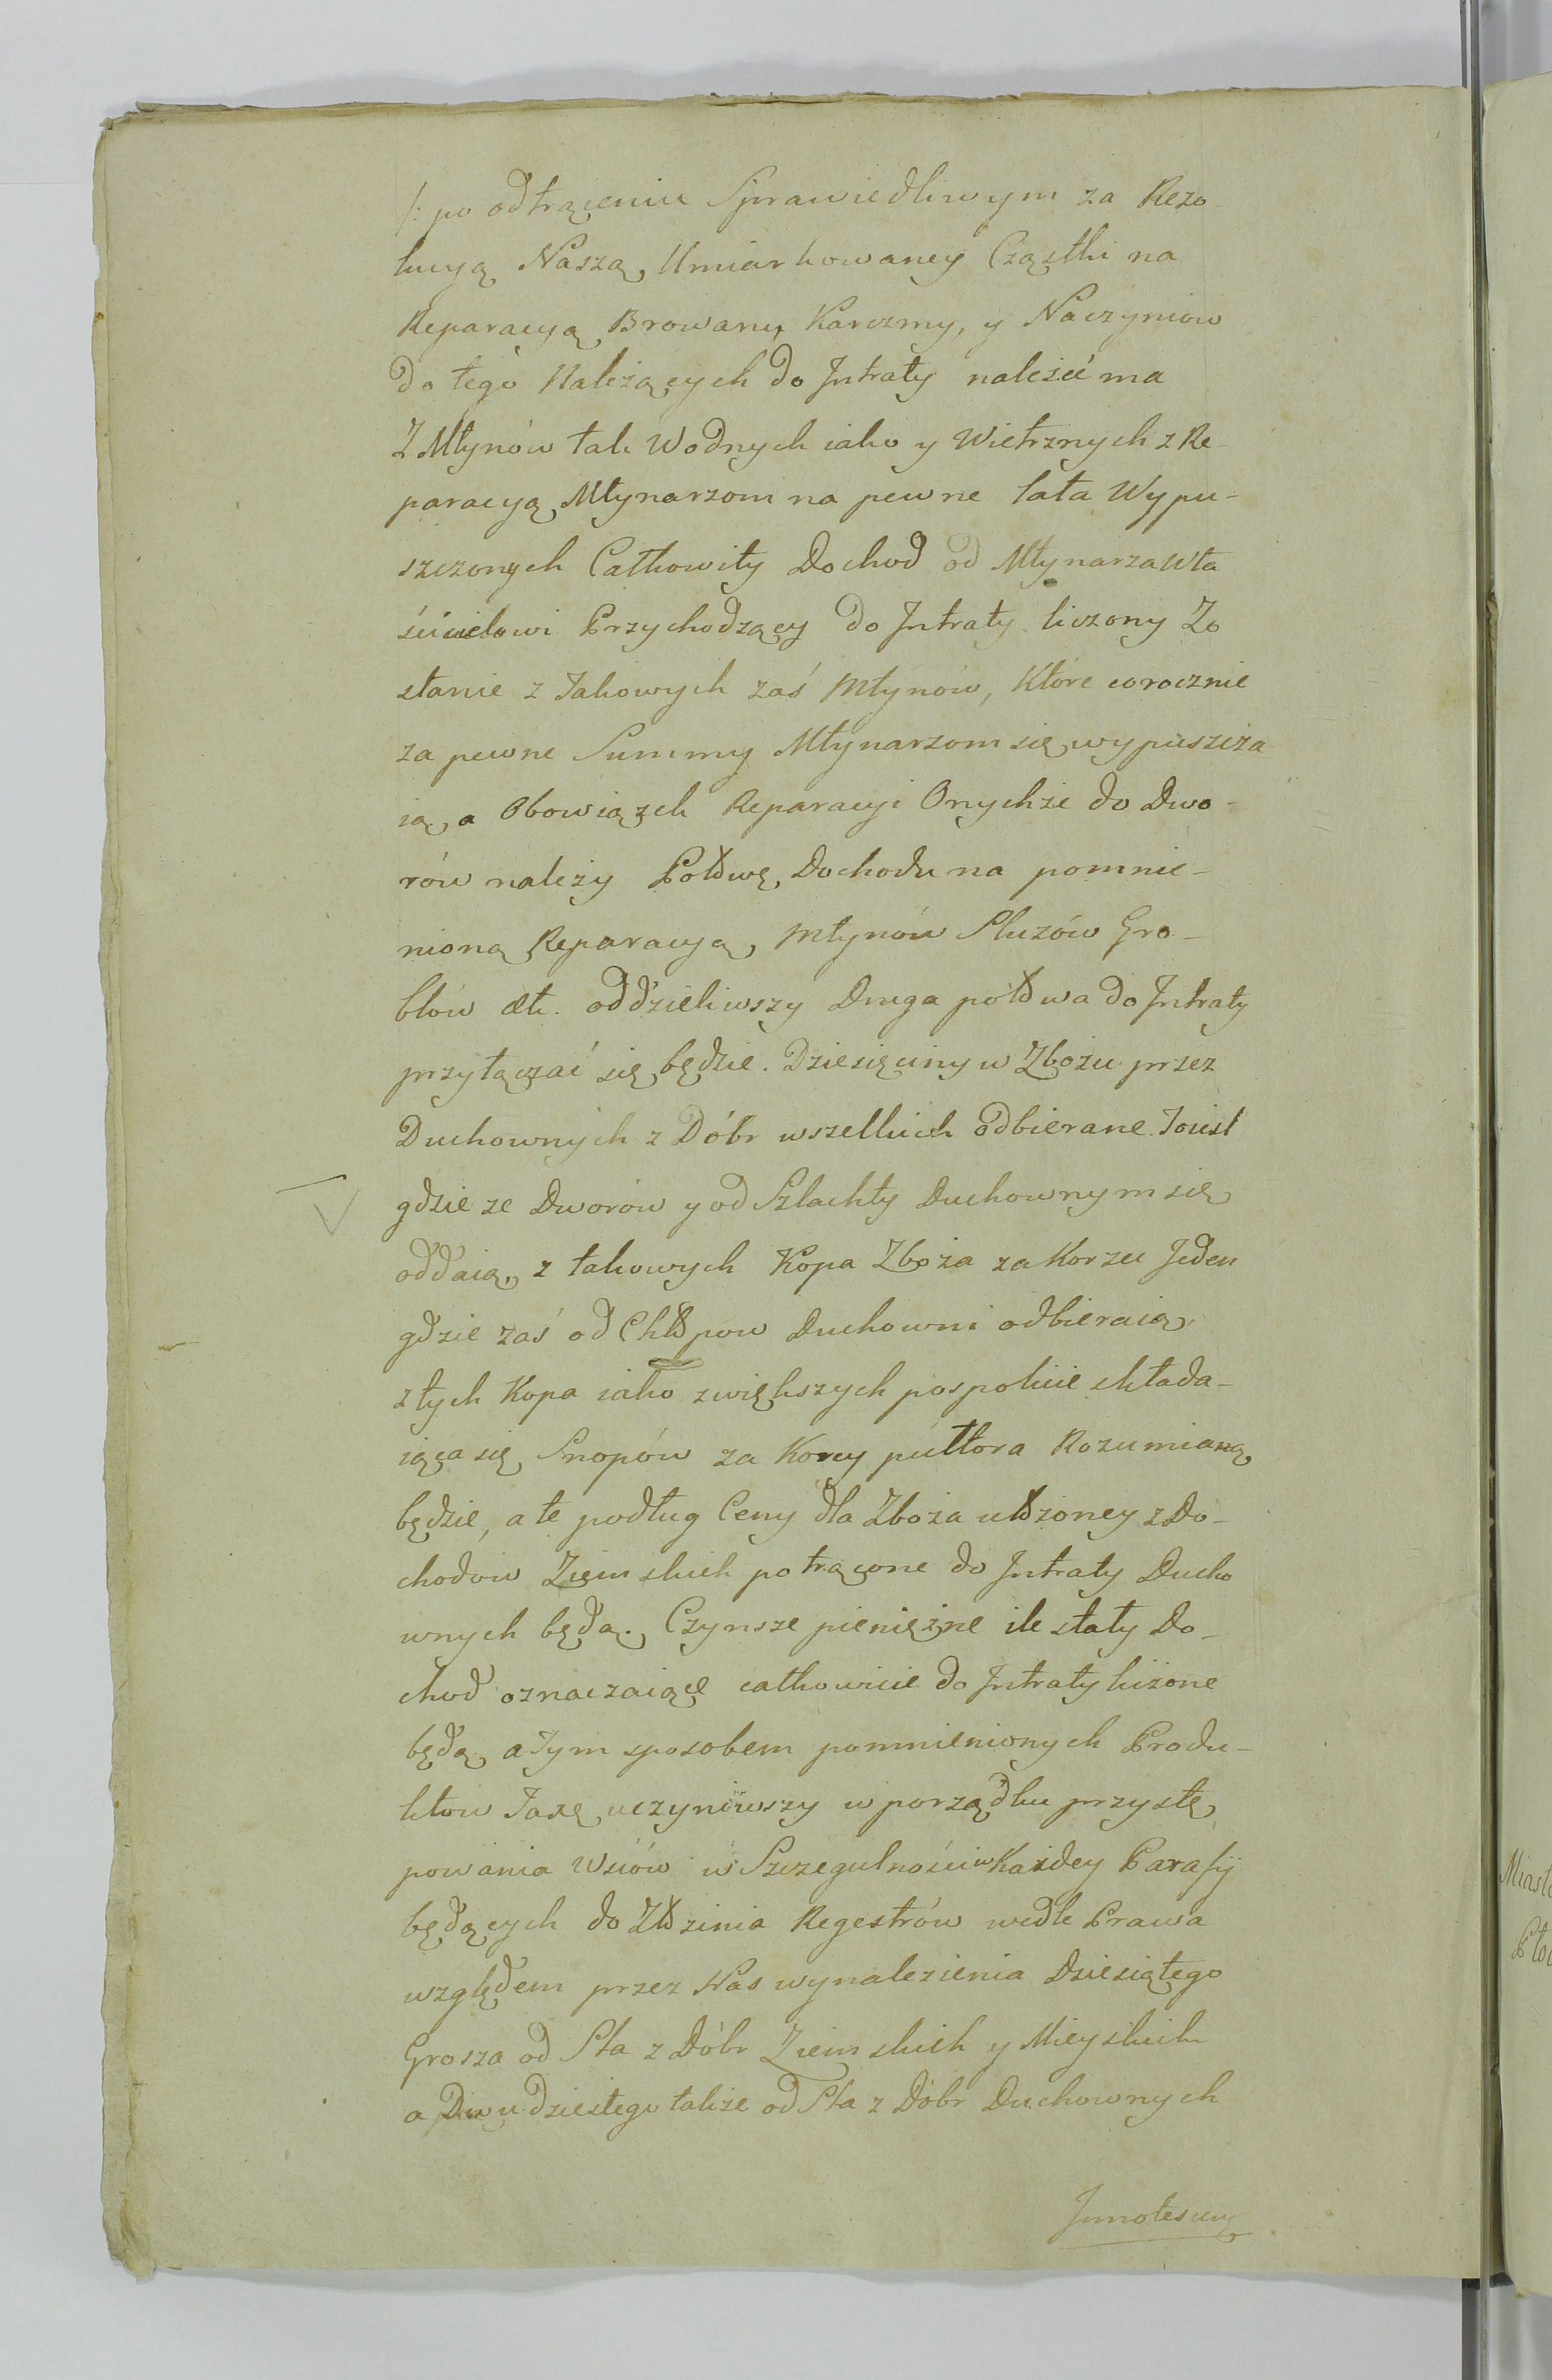 /: po odtrąceniu Sprawiedliwym za Rezo
lucyą Naszą, Umiarkowaney Cząstki na
Reparacyą Browaru, Karczmy, y Naczyniow
do tego Należących do Jntraty należeć ma
Z Młynów tak Wodnych iako y Wietrznych z Re-
paracyą Młynarzom na pewne lata Wypu-
szczonych Całkowity Dochod od Młynarza Wła
ścicielowi Przychodzący do Jntraty liczony Zo
stanie z Takowych zaś Młynów, Które corocznie
za pewne Summy Młynarzom się wypuszcza
ią, a Obowiązek Reparacyi Onychże do Dwo-
rów należy Połowę Dochodu na pomnie-
nioną Reparacyą, Młynów Sluzów Gro-
blów etc. oddzieliwszy Druga połowa do Jntraty
przyłączać się będzie. Dziesięciny w Zbożu przez
Duchownych z Dóbr wszelkich odbierane Toiest
gdzie ze Dworów y od Szlachty Duchownym się
oddaią, z takowych Kopa Zboża za Korzec Jeden
gdzie zaś od Chłopow Duchowni odbieraią,
z tych Kopa iako zwiększych pospolicie składa-
iąca się Snopów za Korcy pułtora Rozumianą
będzie, a te podług Ceny dla Zboża ułożoney z Do-
chodów Ziemskich potrącone do Jntraty Ducho
wnych będą. Czynsze pieniężne ile stały Do-
chod oznaczaiące całkowicie do Jntraty liczone
będą, a Tym sposobem pomnienionych Produ-
ktow Taxę uczyniwszy w porządku przystę
powania Wsiów w Szczegulności w Każdey Parafij
będących do Złożenia Regestrów wedle Prawa
względem przez Nas wynalezienia Dziesiątego
Grosza od Sta z Dóbr Ziemskich y Mieyskich
a Dwudziestego także od Sta z Dóbr Duchownych
Miast